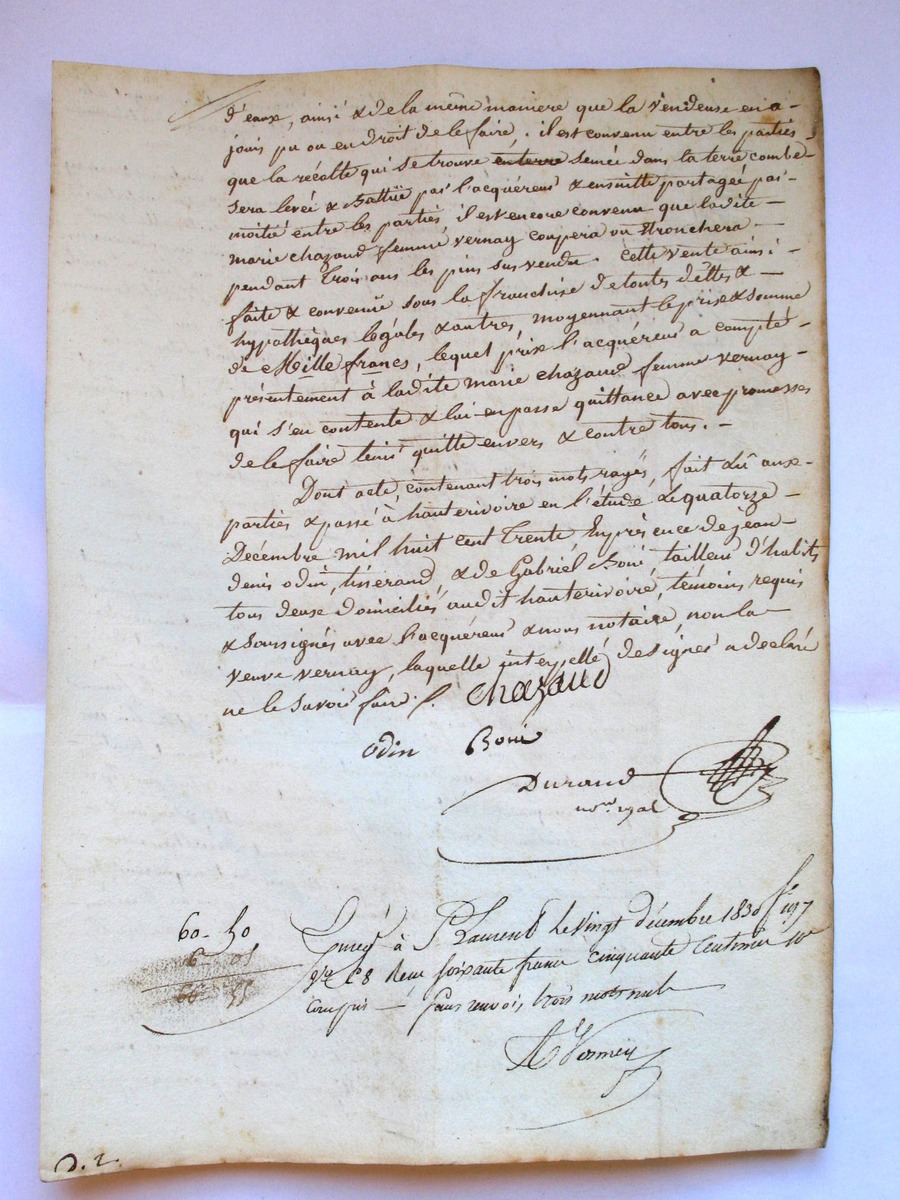 d'eaux, ainsi & de la même maniere que la Vendeuse en a-
joui pu ou en droit de le faire. il est convenu entre les parties
que la récolte qui se trouve en terre semée dans la terre combe
sera levée & Battüe par l'acquéreur & ensuitte partagée par
moitié entre les parties, il est encore convenu que ladite
marie chazaud femme vernay coupera ou tronchera
pendant trois ans les pins sus vendu. Cette vente ainsi
faite & convenüe sous la franchise de toutes dettes &
hypothèques légales & autres, moyennant le prix & somme
de Mille francs, lequel prix l'acquéreur a compté
présentement à ladite marie Chazaud femme vernay
qui s'en contente & lui en passe quittance avec promesses
de le faire tenir quitte envers & contre tous.
Dont acte, contenant trois mots rayés, fait dû aux
parties & passé à hauterivoire en l'étude le quatorze
Décembre mil huit cent Trente En présence de jean
denis odin, tisserand, & de Gabriel Boué, tailleur d'habits
tous deux domiciliés audit hauterivoire, témoins requis
& soussignés avec l'acquéreur & nous notaire, non la
veuve vernay, laquelle interpellé de signer a déclaré
ne le savoir faire.
Chazaud
Odin
Durand
60 - 50
6 - 05
66 - 55
Enreg. à St Laurent le Vingt décembre 1830 fo 197
Reçu soixante francs cinquante Centimes
compris - sans renvois trois mots nuls
D. 2.